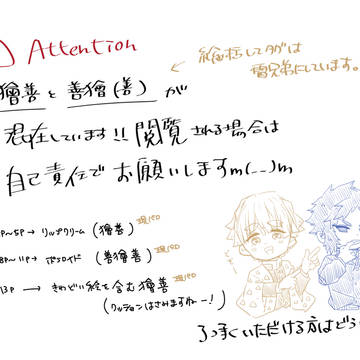 Attention
獪善と善獪(善)が
混在しています!! 閲覧される場合は
自己責任でお願いしますm(__)m
← 総括してタグは
雷兄弟にしています。
P~5P→ リップクリーム(獪善) 現パロ
8P~11P→ ポラロイド(善獪善) 現パロ
13P → きわどい絵を含む獪善 現パロ
(クッションはさみますねー!)
了承いただける方はどう